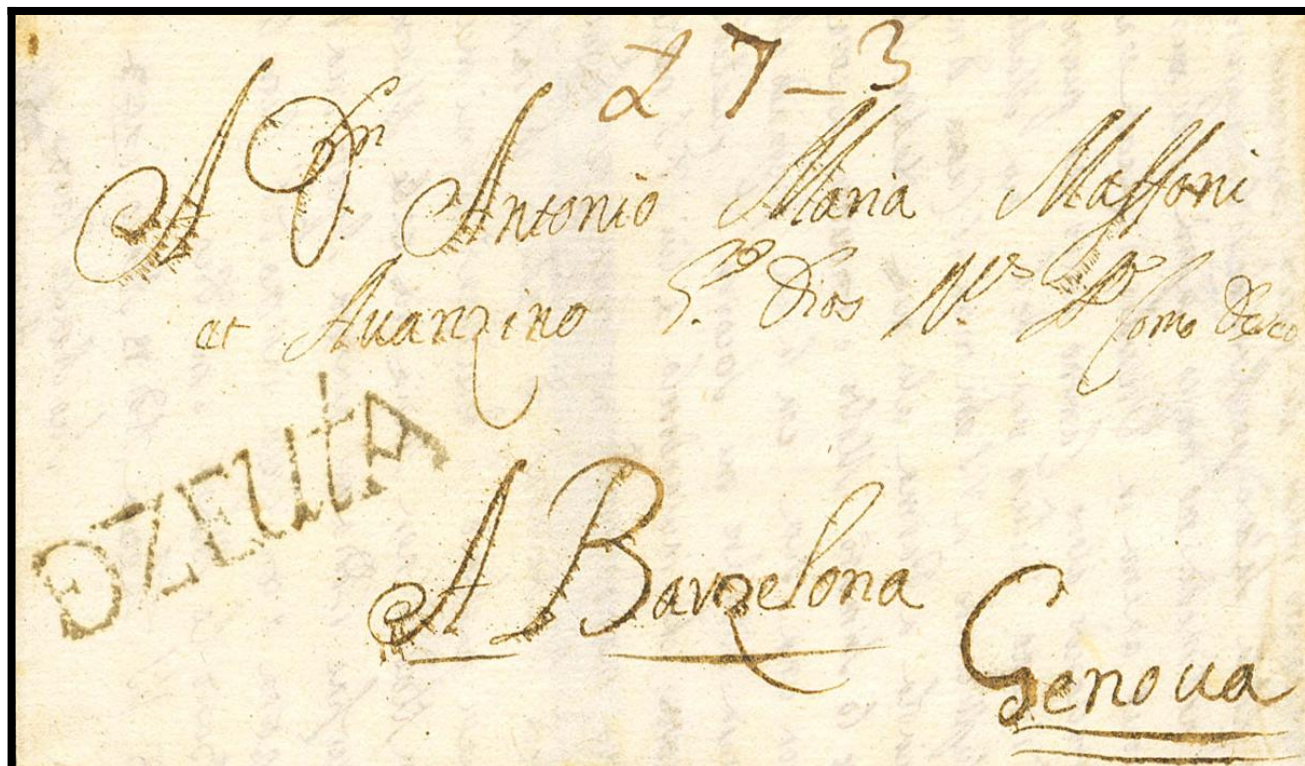 27-3
A Dn. Antonio Maria Maffoni
at Auanzino Gde. Dios Ns. como Deseo
DE ZEUtA
A Barzelona
Genoua